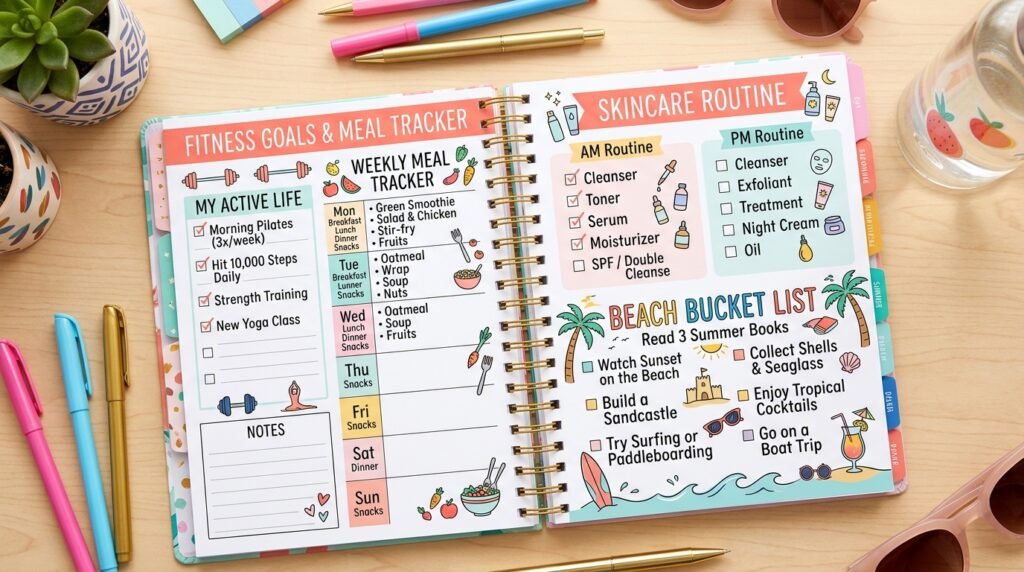 FITNESS GOALS & MEAL TRACKER
MY ACTIVE LIFE
Morning Pilates
(3x/week)
Hit 10,000 Steps
Daily
Strength Training
New Yoga Class
NOTES
WEEKLY MEAL
TRACKER
Mon
Breakfast
Lunch
Dinner
Snacks
• Green Smoothie
• Salad & Chicken
• Stir-fry
• Fruits
Tue
Breakfast
Lunner
Snacks
• Oatmeal
• Wrap
• Soup
• Nuts
Wed
Lunch
Dinner
Snacks
• Oatmeal
• Soup
• Fruits
Thu
Snacks
Fri
Snacks
Sat
Dinner
Sun
Snacks
SKINCARE ROUTINE
AM Routine
Cleanser
Toner
Serum
Moisturizer
SPF / Double
Cleanse
PM Routine
Cleanser
Exfoliant
Treatment
Night Cream
Oil
BEACH BUCKET LIST
Read 3 Summer Books
Watch Sunset
on the Beach
Build a
Sandcastle
Try Surfing or
Paddleboarding
Collect Shells
& Seaglass
Enjoy Tropical
Cocktails
Go on a
Boat Trip
SUMMER